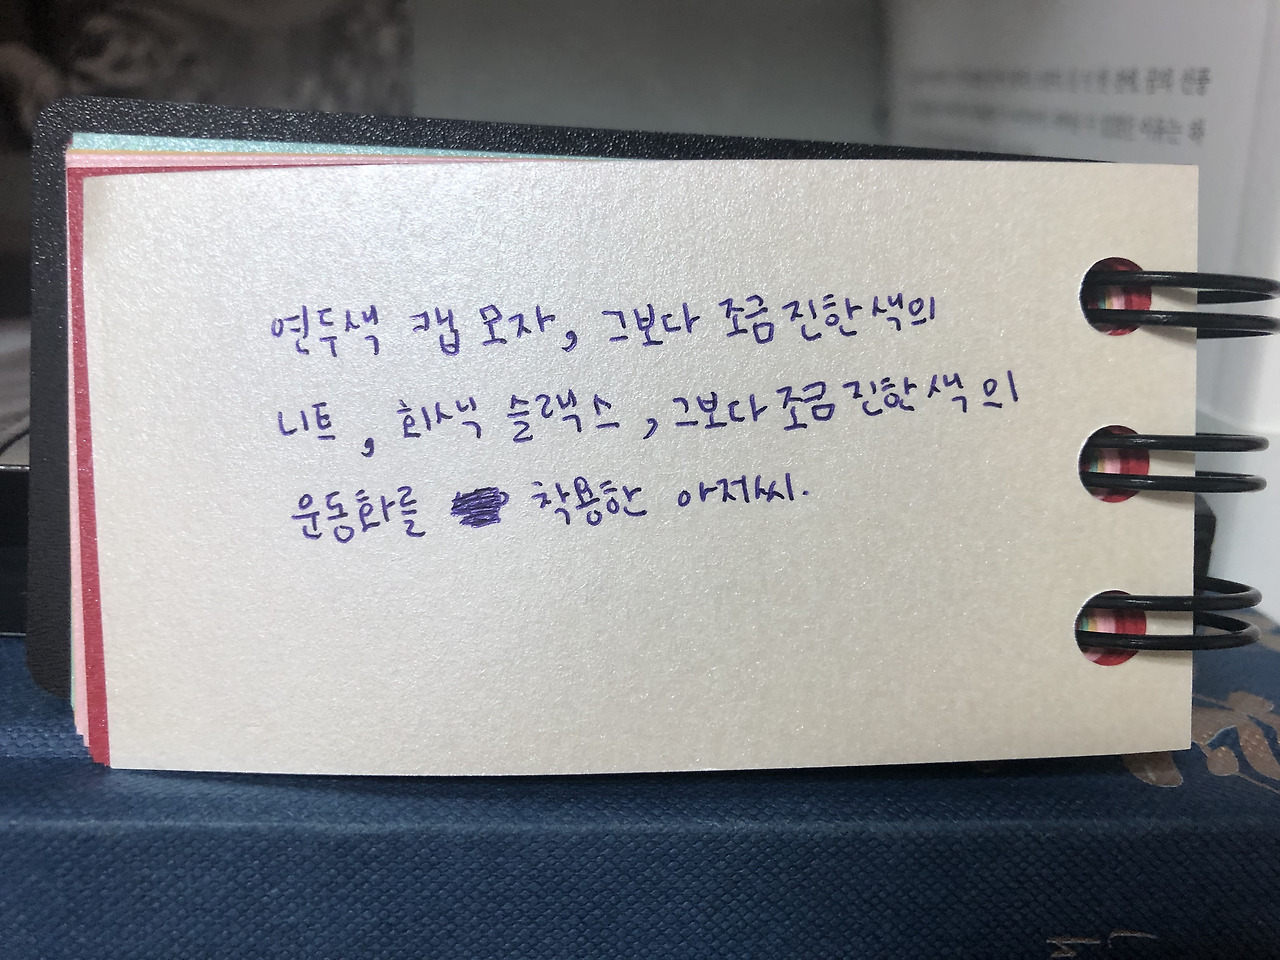 연두색 캡 모자, 그보다 조금 진한 색의
니트, 회색 슬랙스, 그보다 조금 진한 색의
운동화를 착용한 아저씨.